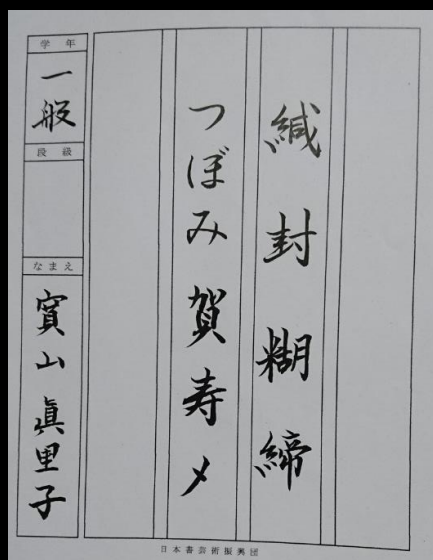 緘封糊締
つぼみ賀寿〆
学年
一般
段級
なまえ
寳山眞里子
日本書芸術振興団